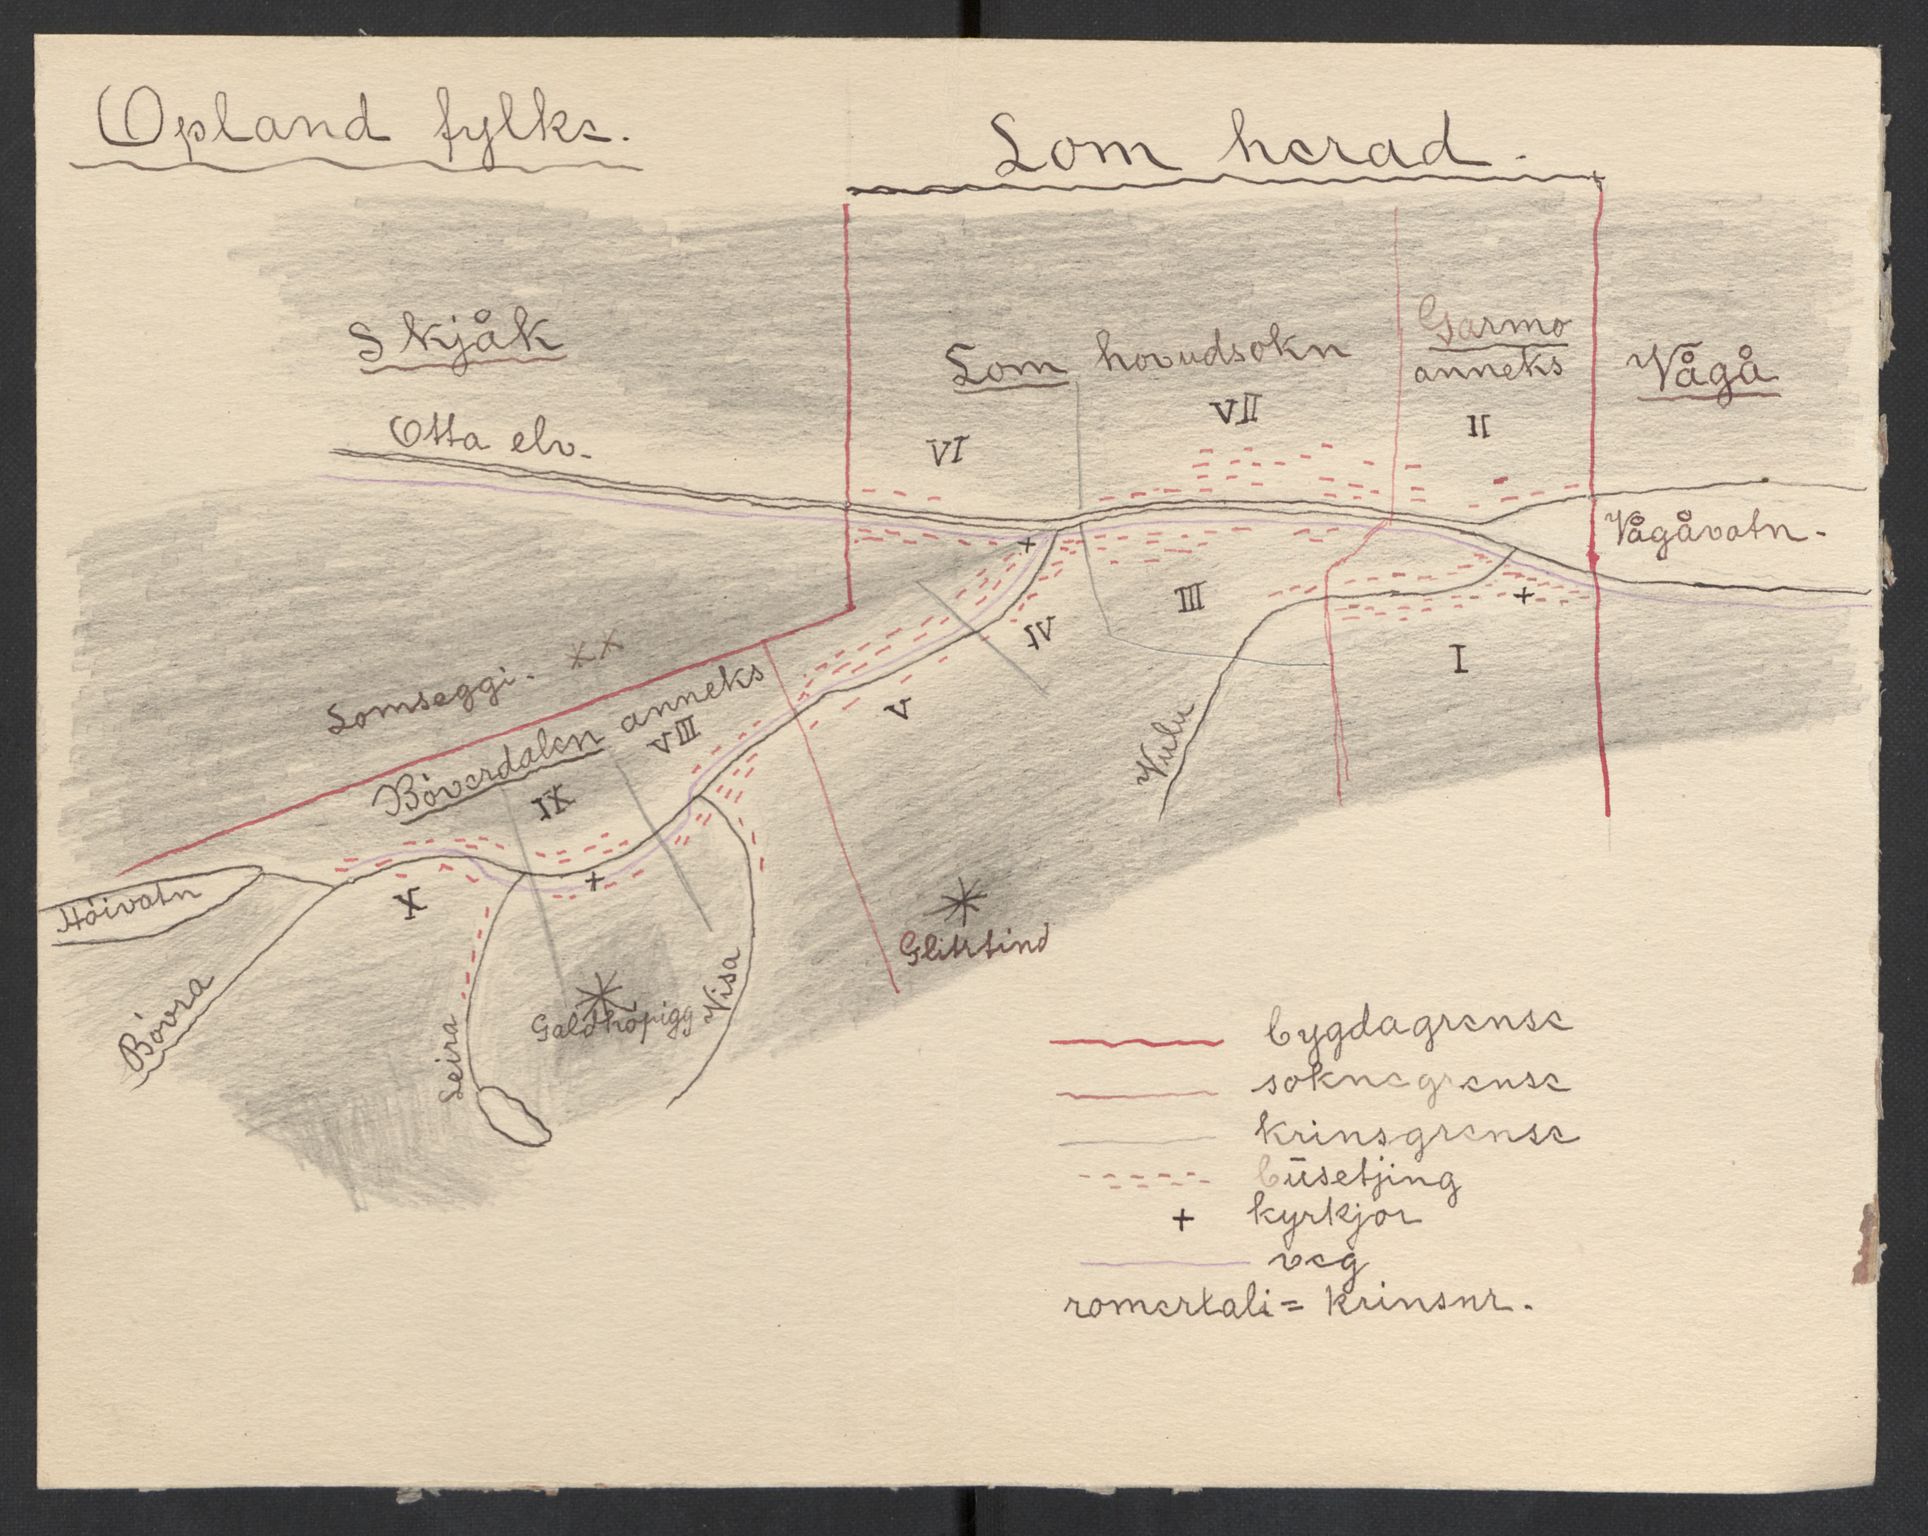 Opland fylke.
Lom herad.
Skjåk
Lom hovudsokn
Garmo
anneks
Vågå
Otta elv.
VI
VII
II
Vågåvatn.
III
IV
I
V
Lomseggi.
Bóverdalen anneks
VIII
IX
X
Vulu
Hóivatn
Bóvra
Leira
Galdhópigg
Visa
Glittertind
bygdagrense
soknegrense
krinsgrense
būsetjing
kyrkjor
veg
romertali = krinsnr.